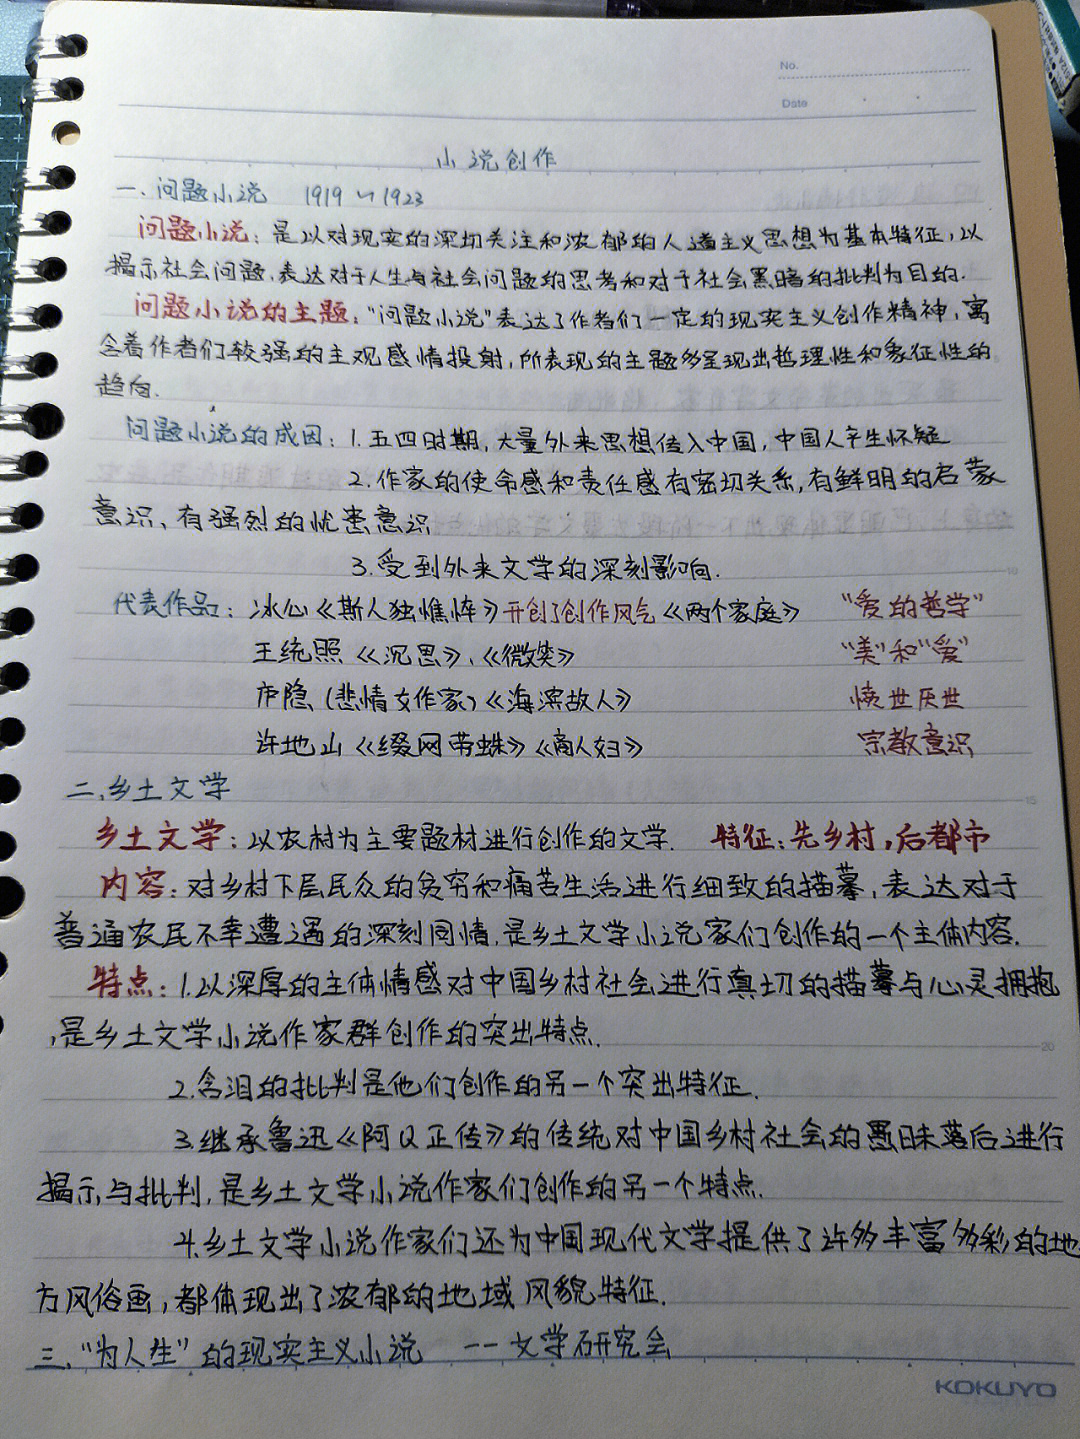 No.
Date
小说创作
一.问题小说 1919～1923
问题小说:是以对现实的深切关注和浓郁的人道主义思想为基本特征,以
揭示社会问题.表达对于人生与社会问题的思考和对于社会黑暗的批判为目的.
问题小说的主题:"问题小说"表达了作者们一定的现实主义创作精神,寓
含着作者们较强的主观感情投射,所表现的主题多呈现出哲理性和象征性的
趋向.
问题小说的成因:1.五四时期,大量外来思想传入中国,中国人产生怀疑
2.作家的使命感和责任感有密切关系,有鲜明的启蒙
意识、有强烈的忧患意识
3.受到外来文学的深刻影响.
代表作品:冰心《斯人独憔悴》开创了创作风气《两个家庭》 "爱的哲学"
王统照《沉思》、《微笑》 "美"和"爱"
庐隐(悲情女作家)《海滨故人》 愤世厌世
许地山《缀网劳蛛》《商人妇》 宗教意识
二.乡土文学
乡土文学:以农村为主要题材进行创作的文学. 特征:先乡村,后都市
内容:对乡村下层民众的贫穷和痛苦生活进行细致的描摹,表达对于
普通农民不幸遭遇的深刻同情.是乡土文学小说家们创作的一个主体内容.
特点:1.以深厚的主体情感对中国乡村社会进行真切的描摹与心灵拥抱
,是乡土文学小说作家群创作的突出特点.
2.含泪的批判是他们创作的另一个突出特征.
3.继承鲁迅《阿Q正传》的传统对中国乡村社会的愚昧落后进行
揭示与批判,是乡土文学小说作家们创作的另一个特点.
4.乡土文学小说作家们还为中国现代文学提供了许多丰富多彩的地
方风俗画,都体现出了浓郁的地域风貌特征.
三."为人生"的现实主义小说 --文学研究会
KOKUYO